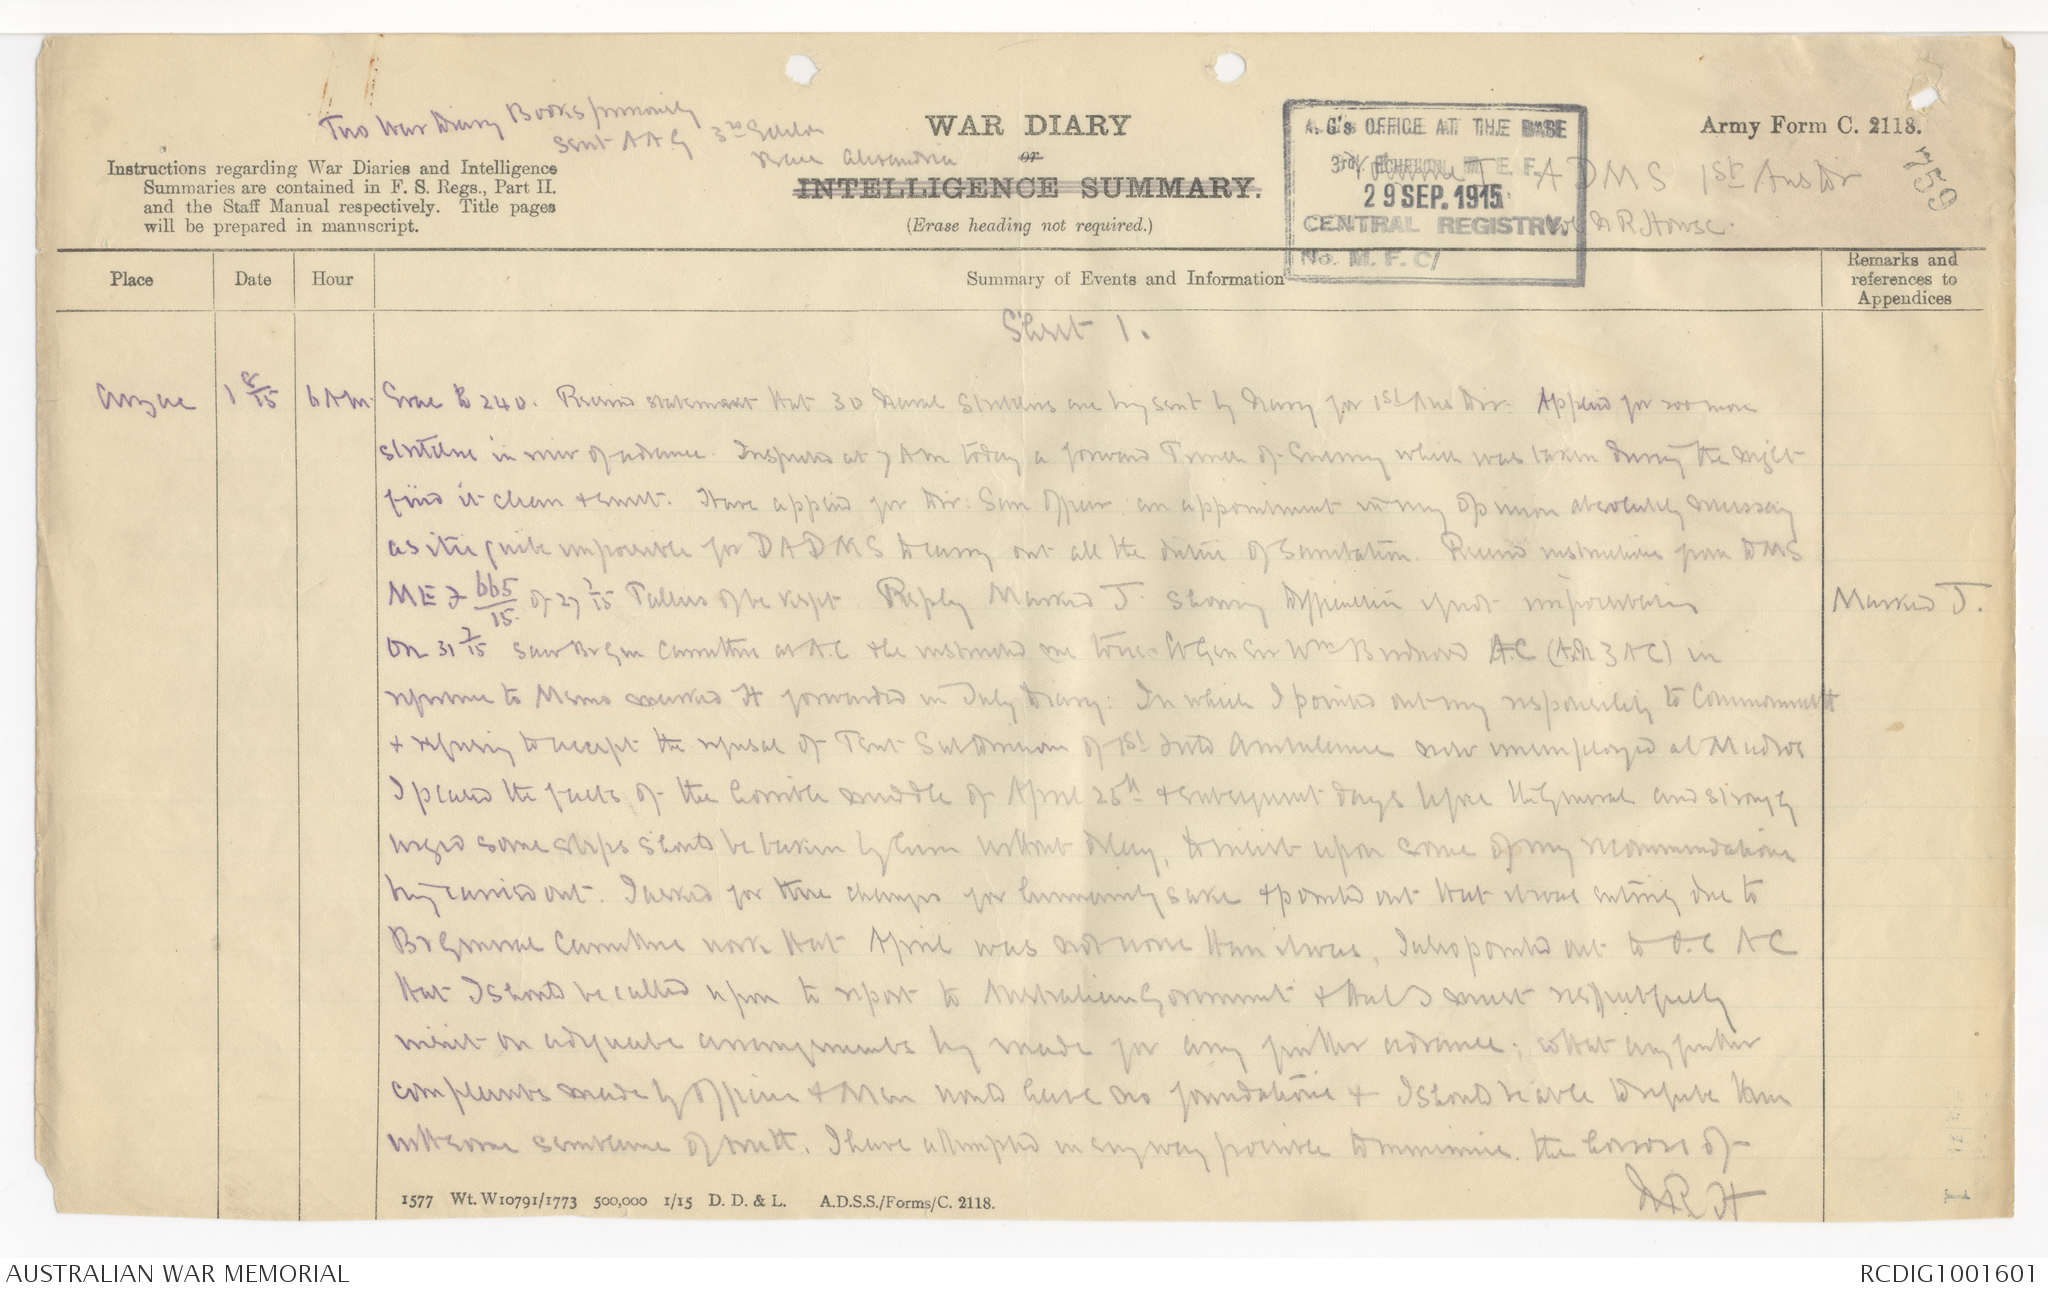 Two War Diary Books previously
sent AAG 3rd Echelon
Base Alexandria
WAR DIARY
or
INTELLIGENCE SUMMARY.
(Erase heading not required.)
Instructions regarding War Diaries and Intelligence
Summaries are contained in F. S. Regs., Part II.
and the Staff Manual respectively. Title pages
will be prepared in manuscript.
A.G's OFFICE AT THE BASE
3rd ECHELON M. E. F.
29 SEP. 1915
CENTRAL REGISTRY.
No. M. F. C/
Army Form C. 2118.
ADMS 1st Aus Div
Col N R Howse.
759
Place
Date
Hour
Summary of Events and Information
Remarks and
references to
Appendices
Sheet 1.
Anzac
1 8/15
6 AM.
240. Received statement that 30 Naval Stretchers are being sent by Navy for 1st Aus Div. Applied for 200 more
stretchers in view of advance. Inspected at 7 AM today a forward Trench of Enemy which was taken during the night
find it clean & sweet. Have applied for Div: San Officer an appointment in my opinion absolutely necessary
as it is quite impossible for DADMS to carry out all the duties of Sanitation. Received instructions from DMS
MEF 665/15 of 27 7/15 to be kept Reply Marked J. showing difficulties if not impossibilities
Marked J.
On 31 7/15 Saw Br Gen Carruthers at A.C & he instructed me to see Lt Gen Sir Wm Birdwood AC (A&NZ AC) in
reference to Memo marked H forwarded in July Diary: In which I pointed out my responsibility to Commonwealth
& refusing to accept the refusal of Tent Subdivision of 1st Field Ambulance now unemployed at Mudros
I placed the facts of the horrible muddle of April 25th & subsequent days before the General and strongly
urged some steps should be taken by him without delay, to insist upon some of my recommendations
being carried out. I asked for these changes for humanity sake & pointed out that it was entirely due to
Br General Carruthers work that April was not worse than it was, I also pointed out to G.O.C AC
that I should be called upon to report to Australian Government & that I must respectfully
insist on adequate arrangements being made for any further advance; so that any further
complaints made by Officers & Men would have no foundations & I should be able to refute them
with some semblance of truth. I have attempted in every way possible to minimise the horrors of
NRH
1577 Wt. W10791/1773 500,000 1/15 D. D. & L. A.D.S.S./Forms/C. 2118.
AUSTRALIAN WAR MEMORIAL
RCDIG1001601